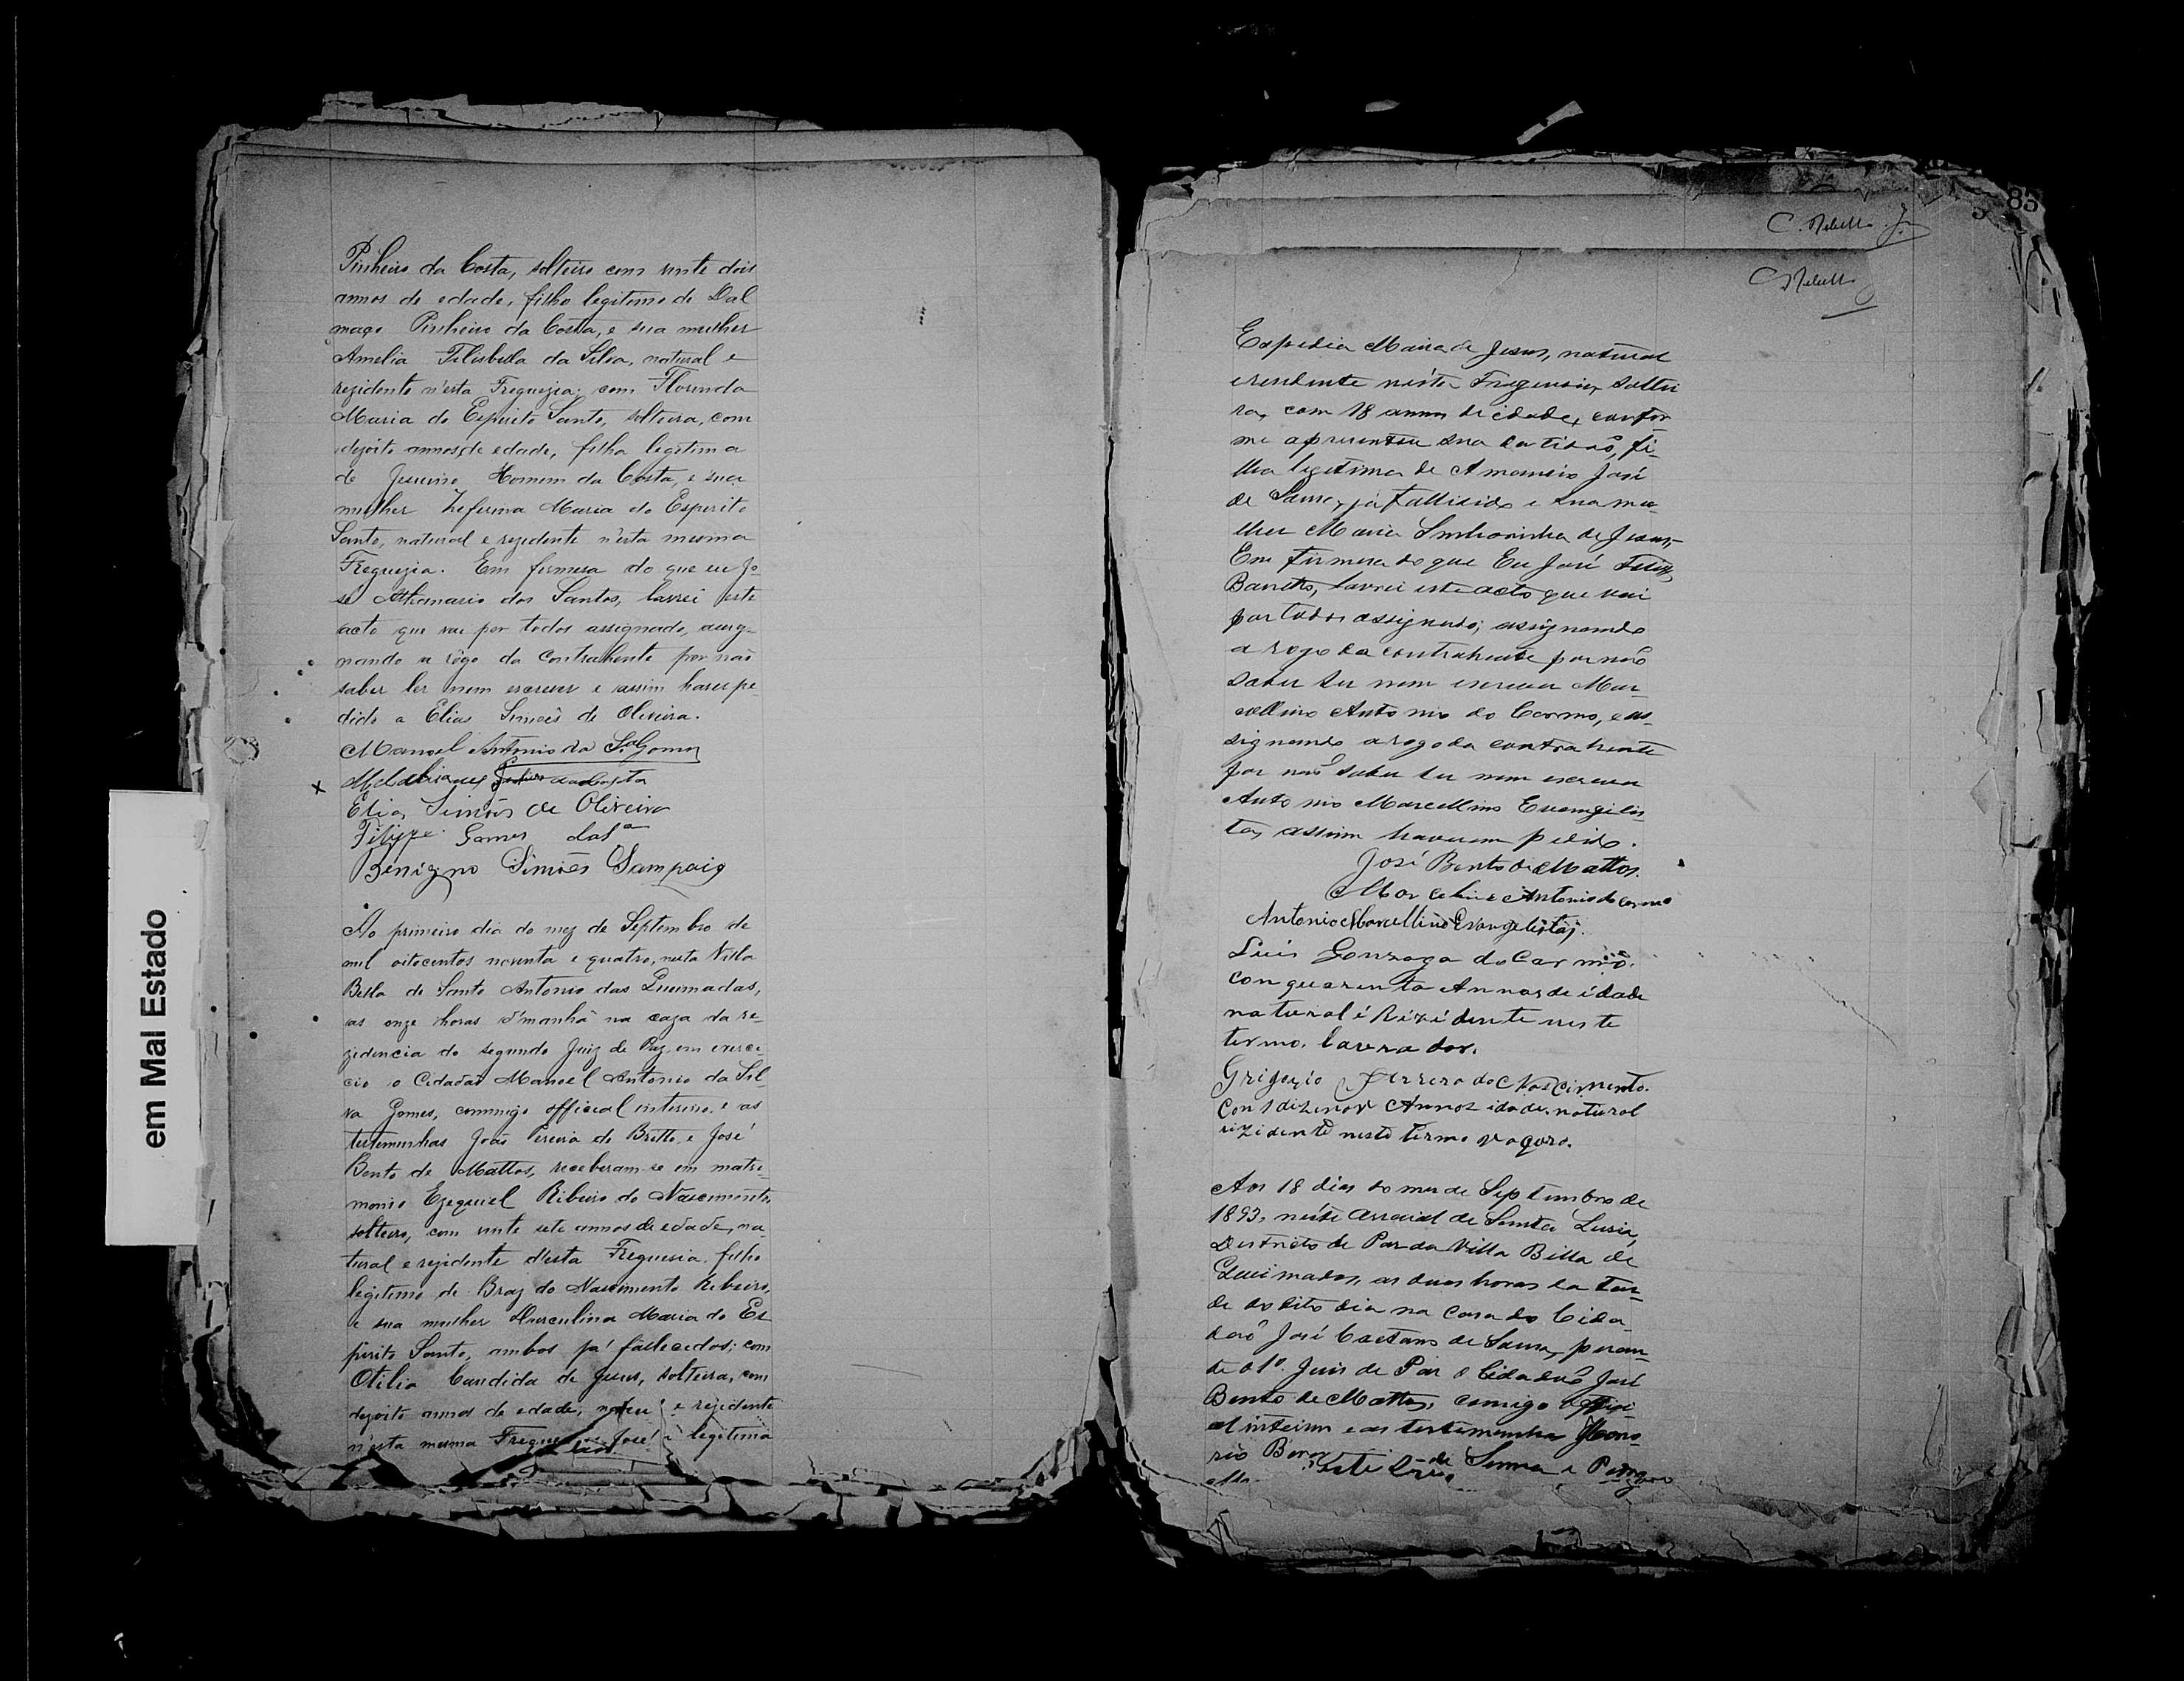 em Mal Estado
Pinheiro da Costa, solteiro com vinte dois
annos de edade, filho legitimo de Dal
mago Pinheiro da Costa, e sua mulher
Amelia Filisbella da Silva, natural e
rezidente n'esta Freguezia; com Florinda
Maria do Espirito Santo, solteira, com
dezoito annos de edade, filha legitima
de Jesuino Homem da Costa, e sua
mulher Zeferina Maria do Espirito
Santo, natural e rezidente n'esta mesma
Freguezia. Em firmesa do que eu Jo-
sé Athanasio dos Santos, lavrei este
acto que vae por todos assignado, assig-
nando a rôgo da Contrahente por não
saber ler nem escrever e assim haver pe-
dido a Elias Simões de Oliveira.
Manoel Antonio da Sª Gomes
Elias Simões de Oliveira
Filippe Gomes da Sª
Benigno Simões Sampaio
Ao primeiro dia do mez de Septembro de
mil oitocentos noventa e quatro, nesta Villa
Bella de Santo Antonio das Queimadas,
as onze horas d'manhã na caza da re-
zidencia do segundo Juiz de Paz em exerci-
cio o Cidadão Manoel Antonio da Sil-
va Gomes, commigo official interino, e as
testemunhas João Pereira de Britto e José
Bento de Mattos, receberam-se em matri-
monio Ezequiel Ribeiro do Nascimento,
solteiro, com vinte sete annos de edade, na-
tural e rezidente d'esta Freguesia, filho
legitimo de Braz do Nascimento Ribeiro,
e sua mulher Herculina Maria do Es
pirito Santo, ambos já fallecidos; com
Otilia Candida de Jesus, solteira, com
dezoito annos de edade, e rezidente
n'esta mesma José legitima
85
C. Rebello Jr
C Rebello
Espedia Maria de Jesus, natural
e residente nésta Freguesia, soltei
ra, com 18 annos de idade, confor
me apresentou sua certidão, fi-
lha legitima de Amancio José
de Sousa, já fallicido e sua mu-
lher Maria Senhorinha de Jesus,
Em firmesa do que Eu José Felix
Baretto, lavrei este acto que vai
por todos assignado; assignando
a rogo da contrahente por não
saber ler nem escrever Mar-
cellino Antonio do Carmo, e as-
signando a rogo da contrahente
por não saber ler nem escrever
Antonio Marcellino Evangelis-
ta, assim haverem pedido.
José Bento de Mattos.
Marcelino Antonio do Carmo
Antonio Marcellino Evangelista.
Luis Gonzaga do Carmo.
con quarenta Annos de idade
natural é Rizidente neste
termo. lavrador.
Grigorio Ferrera do Nascimento.
Con dizenov Annos idade natural
rizidente neste termo vaqoro.
Aos 18 dias do mes de Septembro de
1893, néste Arraial de Santa Lusia,
Destricto de Paz da Villa Bella de
Queimadas, as duas horas da tar-
de do dito dia na casa do Cida-
dão José Caetano de Sousa, peran-
te o 1º Juis de Paz o Cidadão José
Bento de Mattos, comigo Offici-
al interino e as testemunhas Hono-
rio de Senna e